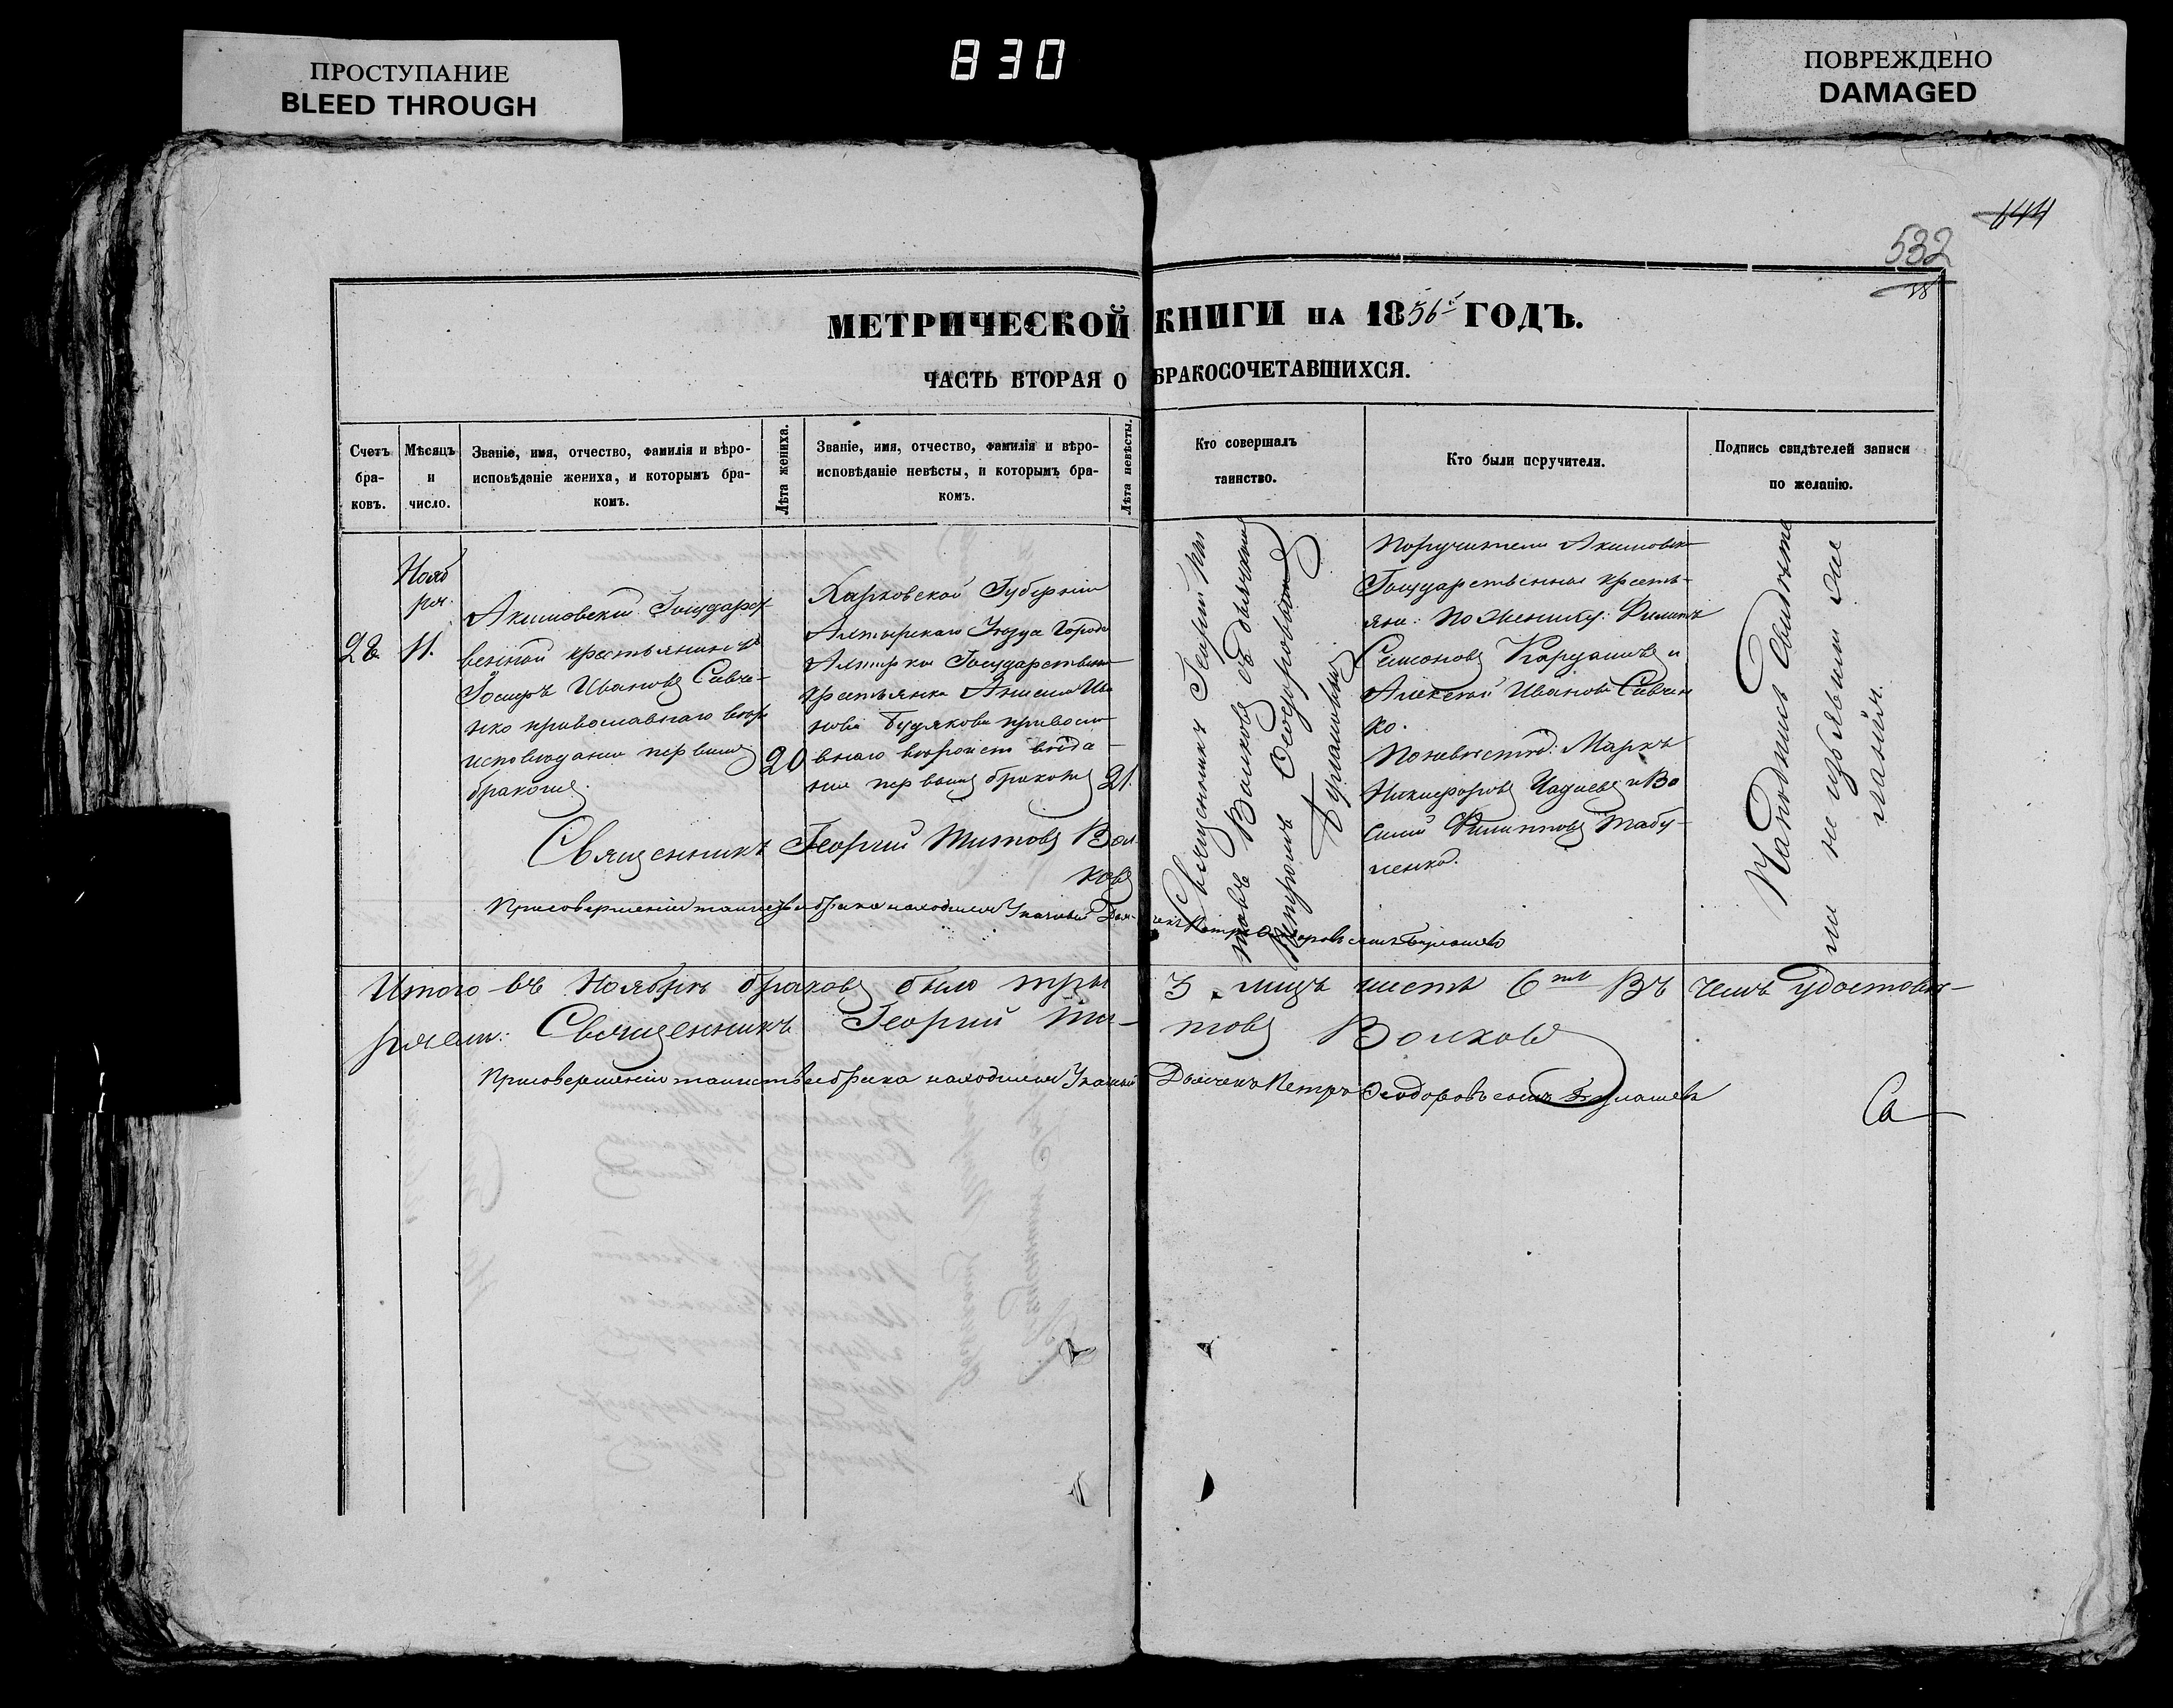 ПРОСТУПАНИЕ
BLEED THROUGH
830
ПОВРЕЖДЕНО
DAMAGED
644
532
МЕТРИЧЕСКОЙ КНИГИ НА 1856 ГОДЪ.
ЧАСТЬ ВТОРАЯ О БРАКОСОЧЕТАВШИХСЯ.
Счетъ
бра-
ковъ.
Мѣсяцъ
и
число.
Званіе, имя, отчество, фамилія и вѣро-
исповѣданіе жениха, и которымъ бра-
комъ.
Лѣта жениха.
Званіе, имя, отчество, фамилія и вѣро-
исповѣданіе невѣсты, и которымъ бра-
комъ.
Лѣта невѣсты.
Кто совершалъ
таинство.
Кто были поручители.
Подпись свидѣтелей записи
по желанію.
28
Нояб
ря.
11.
Акимовскій Государст-
венной крестьянинъ
Іосифъ Ивановъ Савче-
нко православнаго вѣро
исповеданія первымъ
бракомъ
20
Харковской Губерніи
Ахтырскаго Уезда Города
Ахтырки Государственная
крестьянка Анисія Ива
нова Будякова православ
внаго вѣроисповѣда-
нія первымъ бракомъ
21.
Священникъ Георгій Ти
товъ Волковъ съ дьячкомъ
Петромъ Феодоровымъ
Поручители Акимовскія
Государственныя крестья-
яне: По Жениху: Филипъ
Семоновъ Кардашовъ и
Алексѣй Ивановъ Савчен
ко.
По невѣстѣ: Маркъ
Никифоровъ Чадаевъ и Ва
силій Филипповъ Табу-
ненко.
На подпись Свидѣте
ли не изъявили же
ланія.
Священникъ Георгій Титовъ Вол-
ковъ
При совершеніи таинства брака находился Указный Дья-
чекъ Петръ Феодоровъ сынъ
Итого въ Ноябрѣ браковъ было три 3. лицъ шесть 6ть Въ чемъ удостовѣ-
ряемъ: Священникъ Георгій Ти-товъ Волковъ
При совершеніи таинства брака находился Указный Дьячекъ Петръ Феодоровъ сынъ
Са